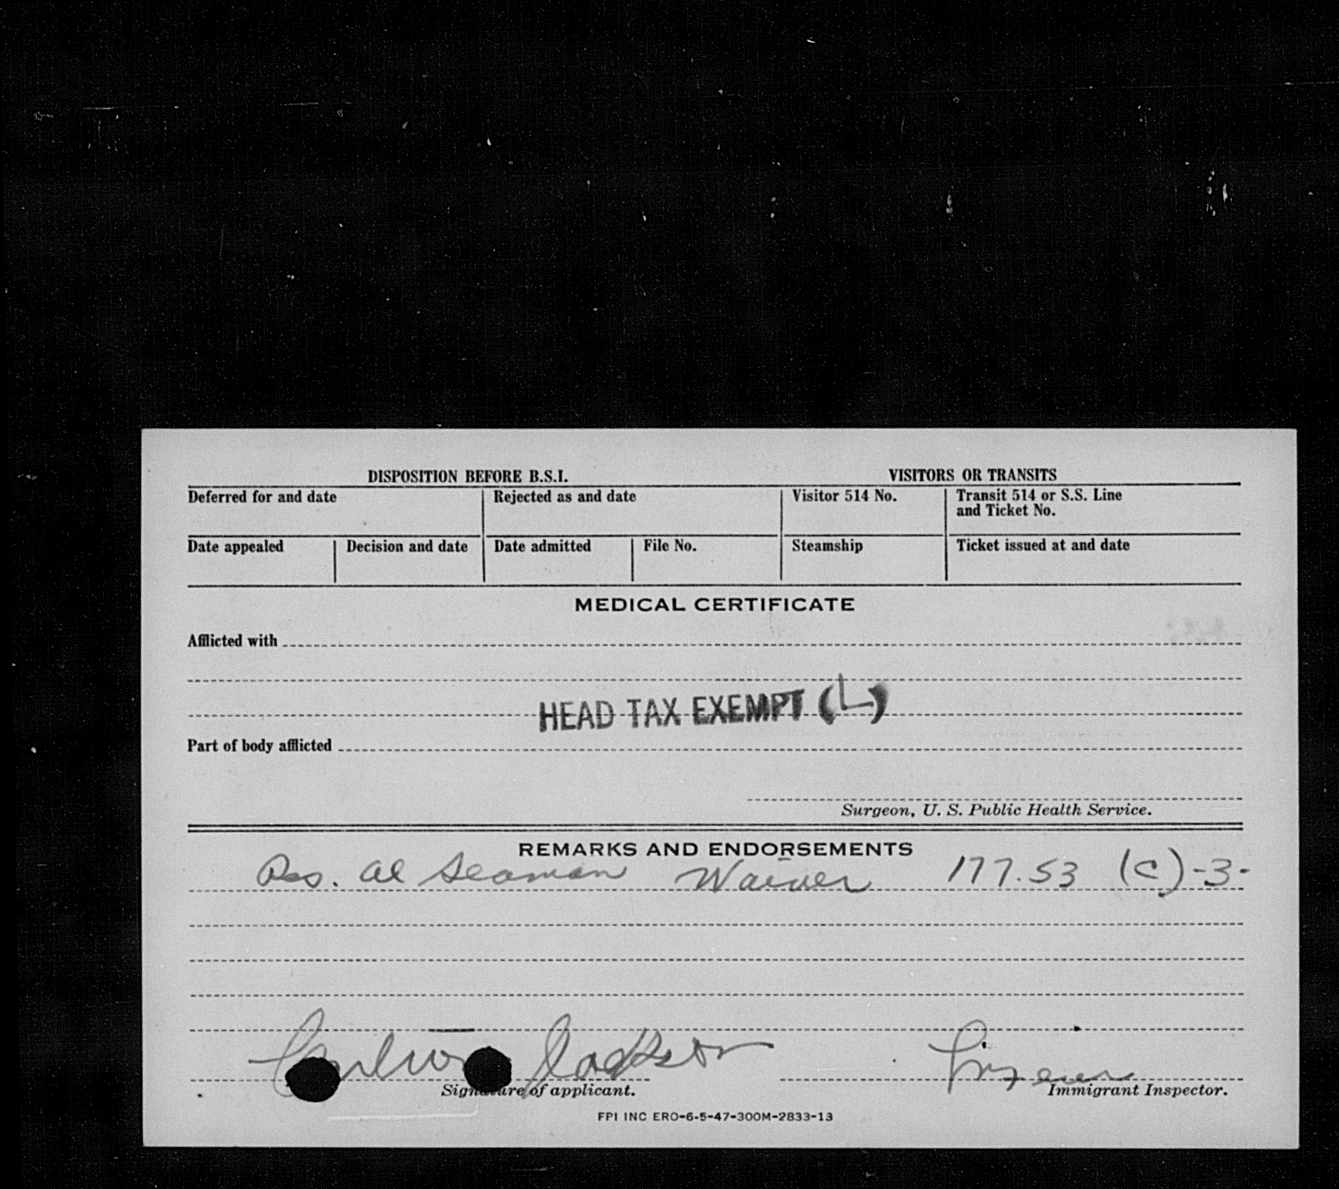 DISPOSITION BEFORE B.S.I. VISITORS OR TRANSITS
Deferred for and date Rejected as and date Visitor 514 No. Transit 514 or S.S. Line
and Ticket No.
Date appealed Decision and date Date admitted File No. Steamship Ticket issued at and date
MEDICAL CERTIFICATE
Afflicted with
HEAD TAX EXEMPT (L)
Part of body afflicted
Surgeon, U. S. Public Health Service.
REMARKS AND ENDORSEMENTS
Res. al seaman Waiver 177.53 (c)-3-
Jackson
Signature of applicant. Immigrant Inspector.
FPI INC ERO-6-5-47-300M-2833-13